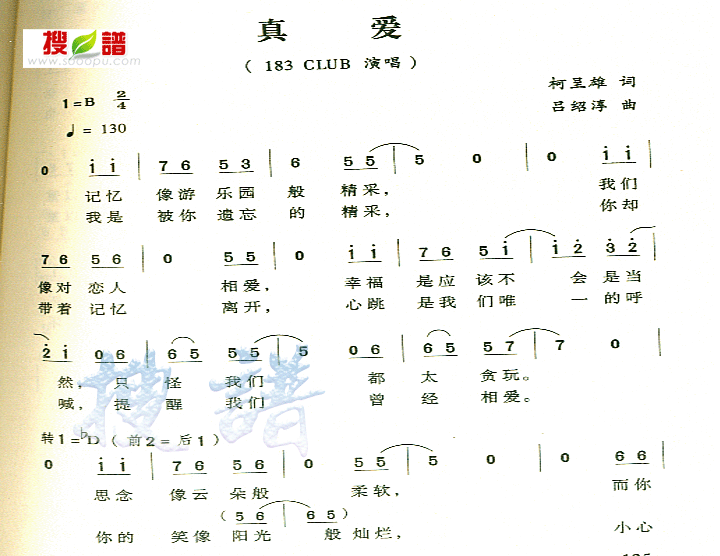 搜譜
www.sooopu.com
真 爱
( 183 CLUB 演唱 )
柯呈雄 词
吕绍淳 曲
1=B 2/4
♩= 130
0 i i | 7 6 5 3 | 6 5 5 | 5 0 | 0 i i |
记忆 像游 乐园 般 精采, 我们
我是 被你 遗忘 的 精采, 你却
7 6 5 6 | 0 5 5 | 0 i i | 7 6 5 i | i 2 3 2 |
像对 恋人 相爱, 幸福 是应 该不 会是当
带着 记忆 离开, 心跳 是我 们唯 一的呼
2 i 0 6 | 6 5 5 5 | 5 0 6 | 6 5 5 7 | 7 0 |
然, 只怪 我们 都太 贪玩。
喊, 提醒 我们 曾经 相爱。
转1=♭D ( 前2=后1 )
0 i i | 7 6 5 6 | 0 5 5 | 5 0 | 0 6 6 |
思念 像云 朵般 柔软, 而你
( 5 6 | 6 5 )
你的 笑像 阳光 般 灿烂, 小心
搜譜